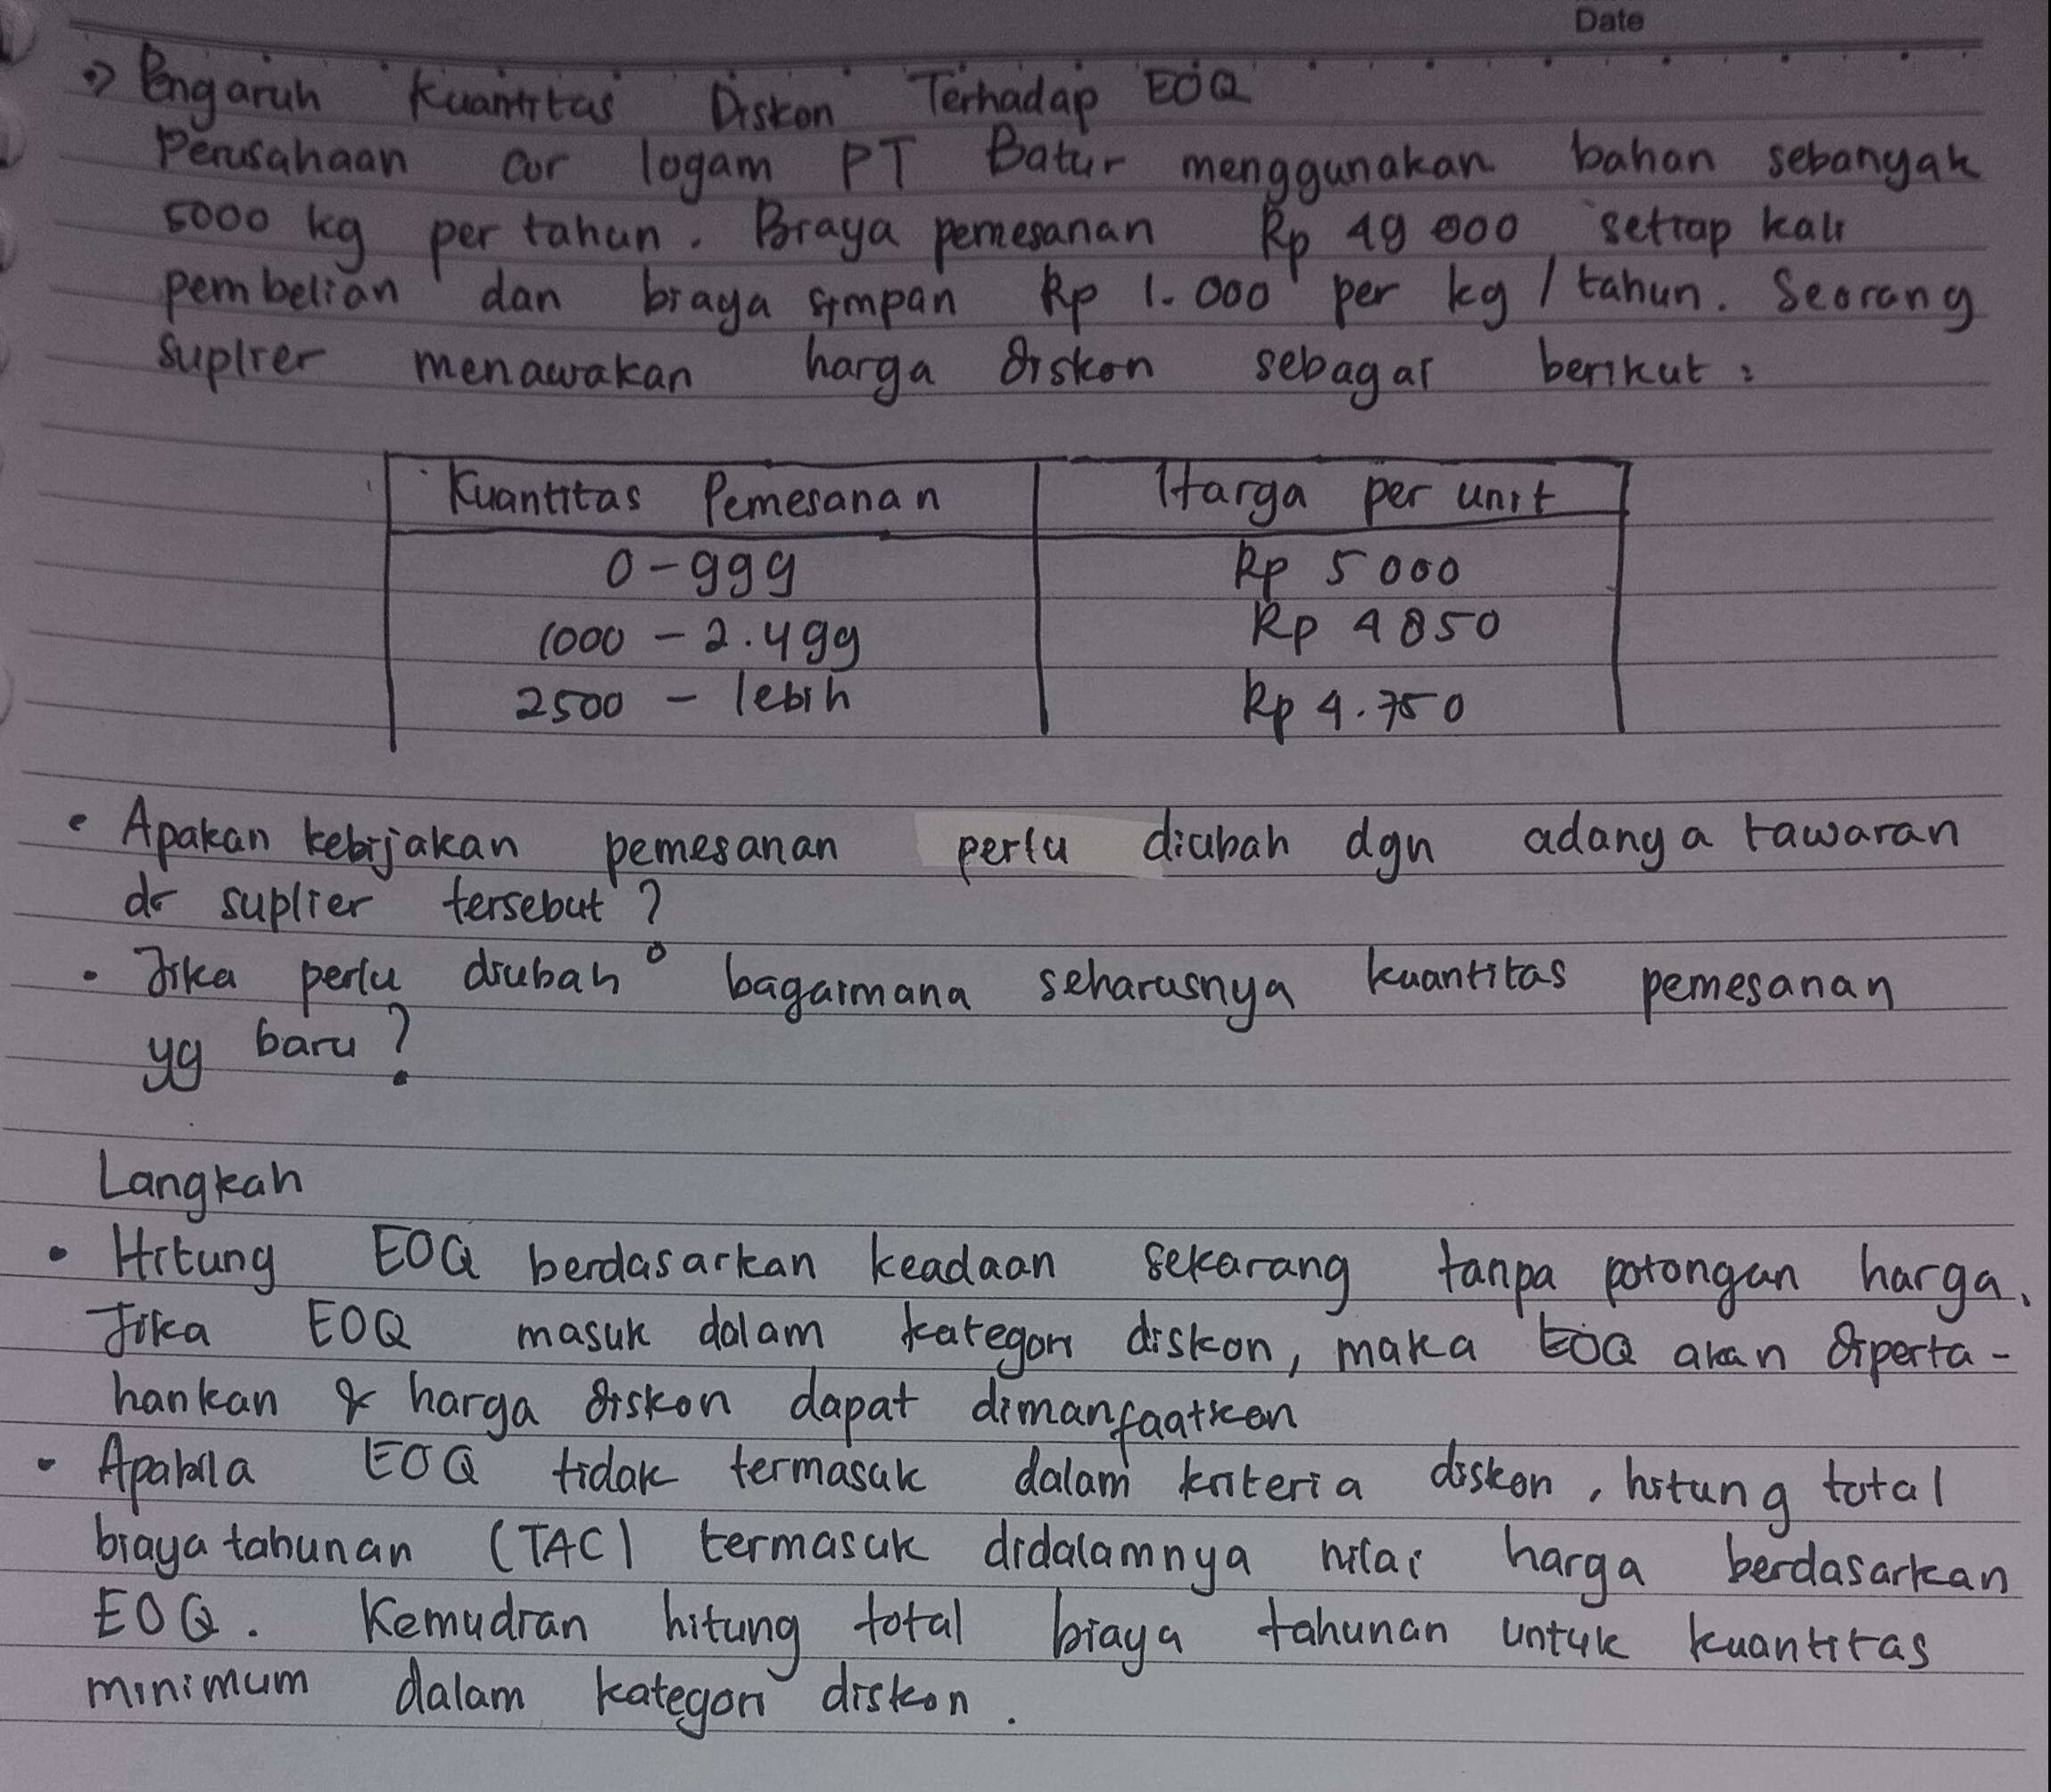 Date
=> Pengaruh Kuantitas Diskon Terhadap EOQ
Perusahaan cor logam PT Batur menggunakan bahan sebanyak
5000 kg per tahun. Biaya pemesanan Rp 49 000 setiap kali
pembelian dan biaya simpan Rp 1.000 per kg / tahun. Seorang
suplier menawakan harga diskon sebagai berikut :
Kuantitas Pemesanan Harga per unit
0 - 999 Rp 5 000
1000 - 2.499 Rp 4 850
2500 - lebih Rp 4.750
• Apakan kebijakan pemesanan perlu diubah dgn adanya tawaran
dr suplier tersebut ?
• Jika perlu diubah bagaimana seharusnya kuantitas pemesanan
yg baru ?
Langkah
• Hitung EOQ berdasarkan keadaan sekarang tanpa potongan harga.
Jika EOQ masuk dalam kategori diskon, maka EOQ akan diperta-
hankan & harga diskon dapat dimanfaatkan
• Apabila EOQ tidak termasuk dalam kriteria diskon, hitung total
biaya tahunan (TAC) termasuk didalamnya nilai harga berdasarkan
EOQ. Kemudian hitung total biaya tahunan untuk kuantitas
minimum dalam kategori diskon.